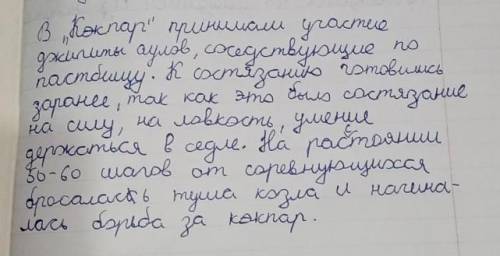 В „Кәкпар" принимали участие
джигиты аулов, соседствующие по
пастбищу. К состязанию готовились
заранее, так как это было состязание
на силу, на ловкость, умение
держаться в седле. На расстоянии
50-60 шагов от соревнующихся
бросалась туша козла и начина-
лась борьба за кәкпар.